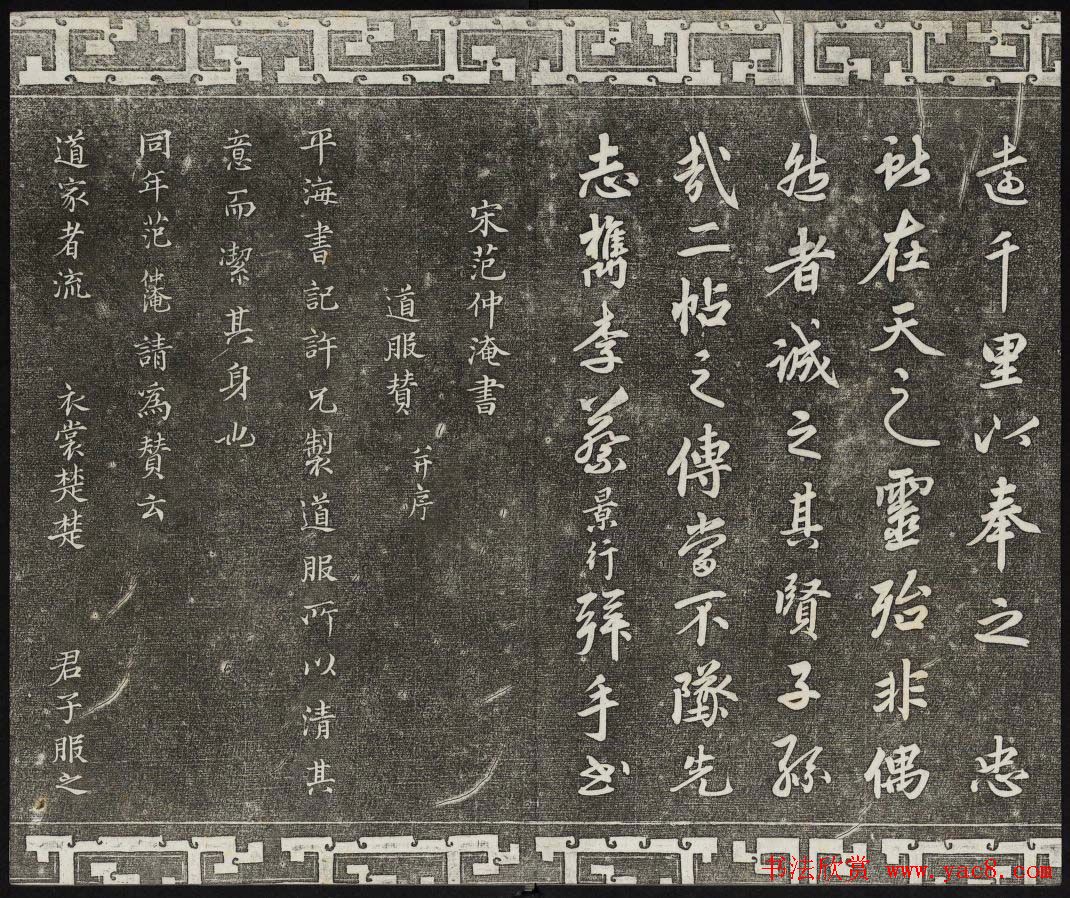 遠千里以奉之 忠
獻在天之靈殆非偶
然者誠之其賢子孫
哉二帖之傳當不墜先
志檇李蔡景行拜手書
宋范仲淹書
道服贊 并序
平海書記許兄製道服所以清其
意而潔其身也
同年范仲淹請爲贊云
道家者流 衣裳楚楚 君子服之
书法欣赏 www.yac8.com